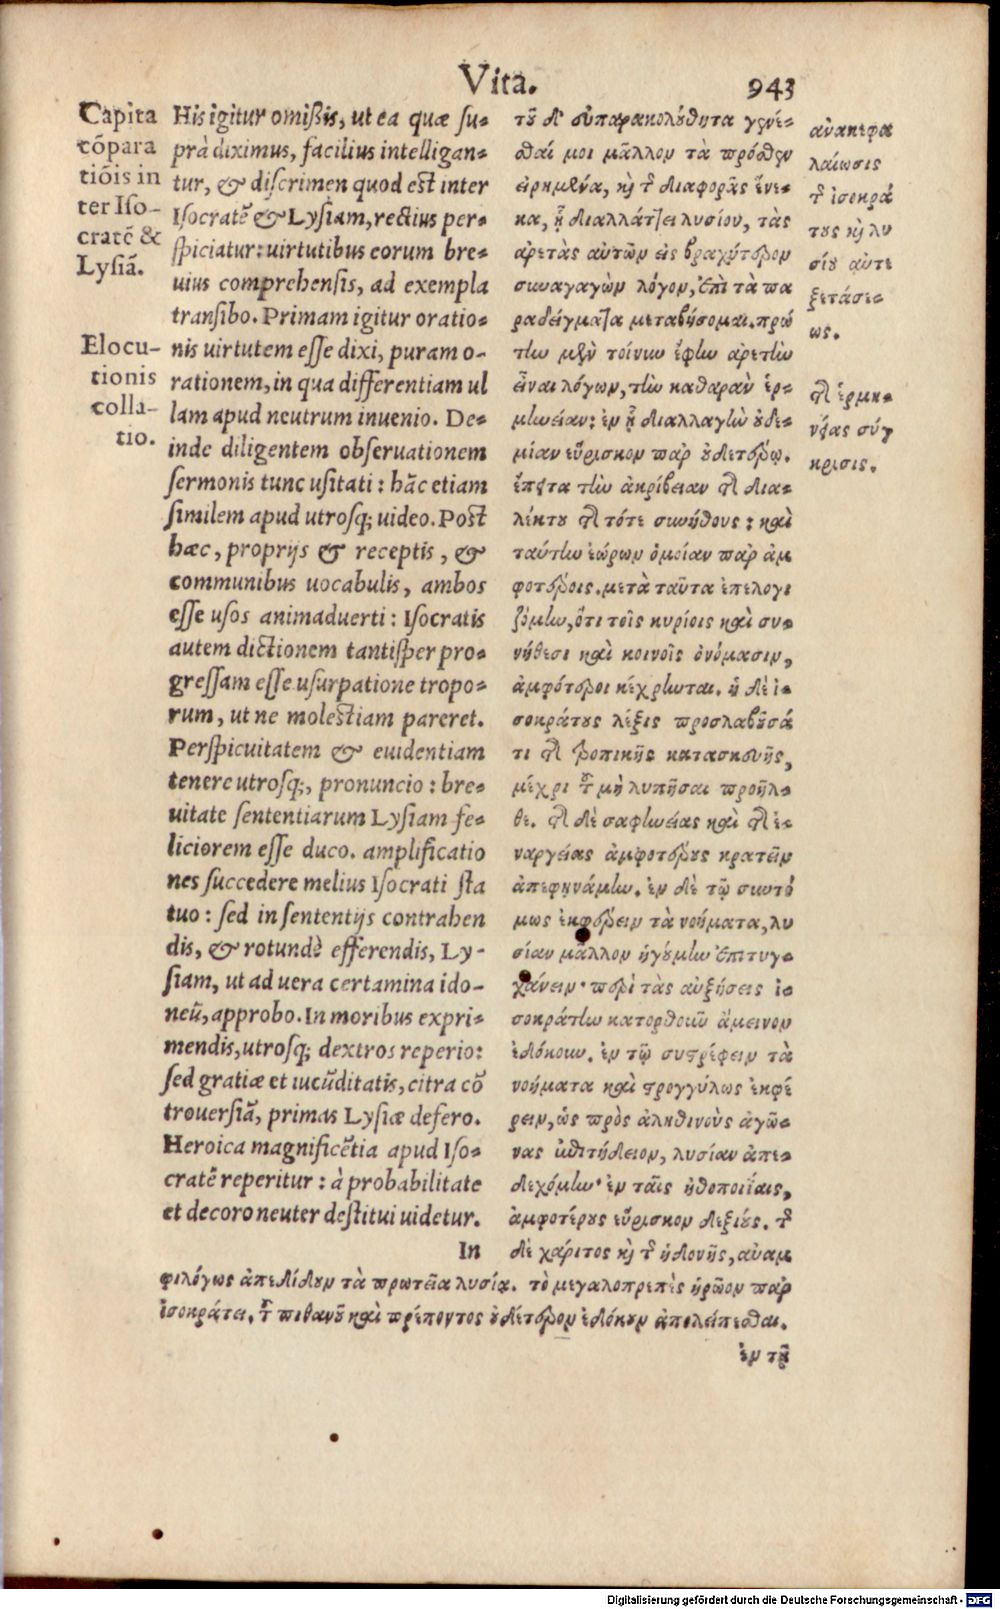 Vita.
943
Capita
cõpara
tiõis in
ter Iso-
cratẽ &
Lysiã.
Elocu-
tionis
colla-
tio.
His igitur omißis, ut ea quæ su-
prà diximus, facilius intelligan-
tur, & discrimen quod est inter
Isocratẽ & Lysiam, rectius per-
spiciatur: uirtutibus eorum bre-
uius comprehensis, ad exempla
transibo. Primam igitur oratio-
nis uirtutem esse dixi, puram o-
rationem, in qua differentiam ul
lam apud neutrum inuenio. De-
inde diligentem obseruationem
sermonis tunc usitati: hãc etiam
similem apud utrosq; uideo. Post
hæc, proprijs & receptis, &
communibus uocabulis, ambos
esse usos animaduerti: Isocratis
autem dictionem tantisper pro-
gressam esse usurpatione tropo-
rum, ut ne molestiam pareret.
Perspicuitatem & euidentiam
tenere utrosq;, pronuncio: bre-
uitate sententiarum Lysiam fe-
liciorem esse duco. amplificatio
nes succedere melius Isocrati sta
tuo: sed in sententijs contrahen
dis, & rotundè efferendis, Ly-
siam, ut ad uera certamina ido-
neũ, approbo. In moribus expri-
mendis, utrosq; dextros reperio:
sed gratiæ et iucũditatis, citra cõ
trouersiã, primas Lysiæ defero.
Heroica magnificẽtia apud Iso-
cratẽ reperitur: à probabilitate
et decoro neuter destitui uidetur.
In
τοῦ δ' εὐπαρακολούθητα γενέ-
σθαί μοι μᾶλλον τὰ πρόσθεν
εἰρημένα, καὶ τῆς διαφορᾶς ἕνε-
κα, ᾗ διαλλάττει λυσίου, τὰς
ἀρετὰς αὐτῶν εἰς βραχύτερον
συναγαγὼν λόγον, ἐπὶ τὰ πα
ραδείγματα μεταβήσομαι. πρώ
την μὲν τοίνυν ἔφην ἀρετὴν
εἶναι λόγων, τὴν καθαρὰν ἑρ-
μηνείαν: ἐν ᾗ διαλλαγὴν οὐδε-
μίαν εὕρισκον παρ' οὐδετέρῳ.
ἔπειτα τὴν ἀκρίβειαν τῆς δια-
λέκτου τῆς τότε συνήθους: καὶ
ταύτην ἑώρων ὁμοίαν παρ' ἀμ
φοτέροις. μετὰ ταῦτα ἐπελογι
ζόμην, ὅτι τοῖς κυρίοις καὶ συ-
νήθεσι καὶ κοινοῖς ὀνόμασιν,
ἀμφότεροι κέχρηνται. ἡ δὲ ἰ-
σοκράτους λέξις προσλαβοῦσά
τι τῆς τροπικῆς κατασκευῆς,
μέχρι τοῦ μὴ λυπῆσαι προῆλ-
θε. τῆς δὲ σαφηνείας καὶ τῆς ἐ-
ναργείας ἀμφοτέρους κρατεῖν
ἀπεφηνάμην. ἐν δὲ τῷ συντό
μως ἐκφέρειν τὰ νοήματα, λυ
σίαν μᾶλλον ἡγούμην ἐπιτυγ-
χάνειν· περὶ τὰς αὐξήσεις ἰ-
σοκράτην κατορθοῦν ἄμεινον
ἐδόκουν. ἐν τῷ συστρέφειν τὰ
νοήματα καὶ στρογγύλως ἐκφέ
ρειν, ὡς πρὸς ἀληθινοὺς ἀγῶ-
νας ἐπιτήδειον, λυσίαν ἀπε-
δεχόμην· ἐν ταῖς ἠθοποιΐαις,
ἀμφοτέρους εὕρισκον δεξιούς. τῆς
δὲ χάριτος καὶ τῆς ἡδονῆς, ἀναμ
φιλόγως ἀπεδίδουν τὰ πρωτεῖα λυσίᾳ. τὸ μεγαλοπρεπὲς ἡρῶον παρ'
ἰσοκράτει. τοῦ πιθανοῦ καὶ πρέποντος οὐδέτερον ἐδόκουν ἀπολείπεσθαι.
ἐν τῇ
ἀνακεφα
λαίωσις
τῆς ἰσοκρά
τους καὶ λυ
σίου ἀντε
ξετάσε-
ως.
τῆς ἑρμη-
νείας σύγ
κρισις.
Digitalisierung gefördert durch die Deutsche Forschungsgemeinschaft - DFG